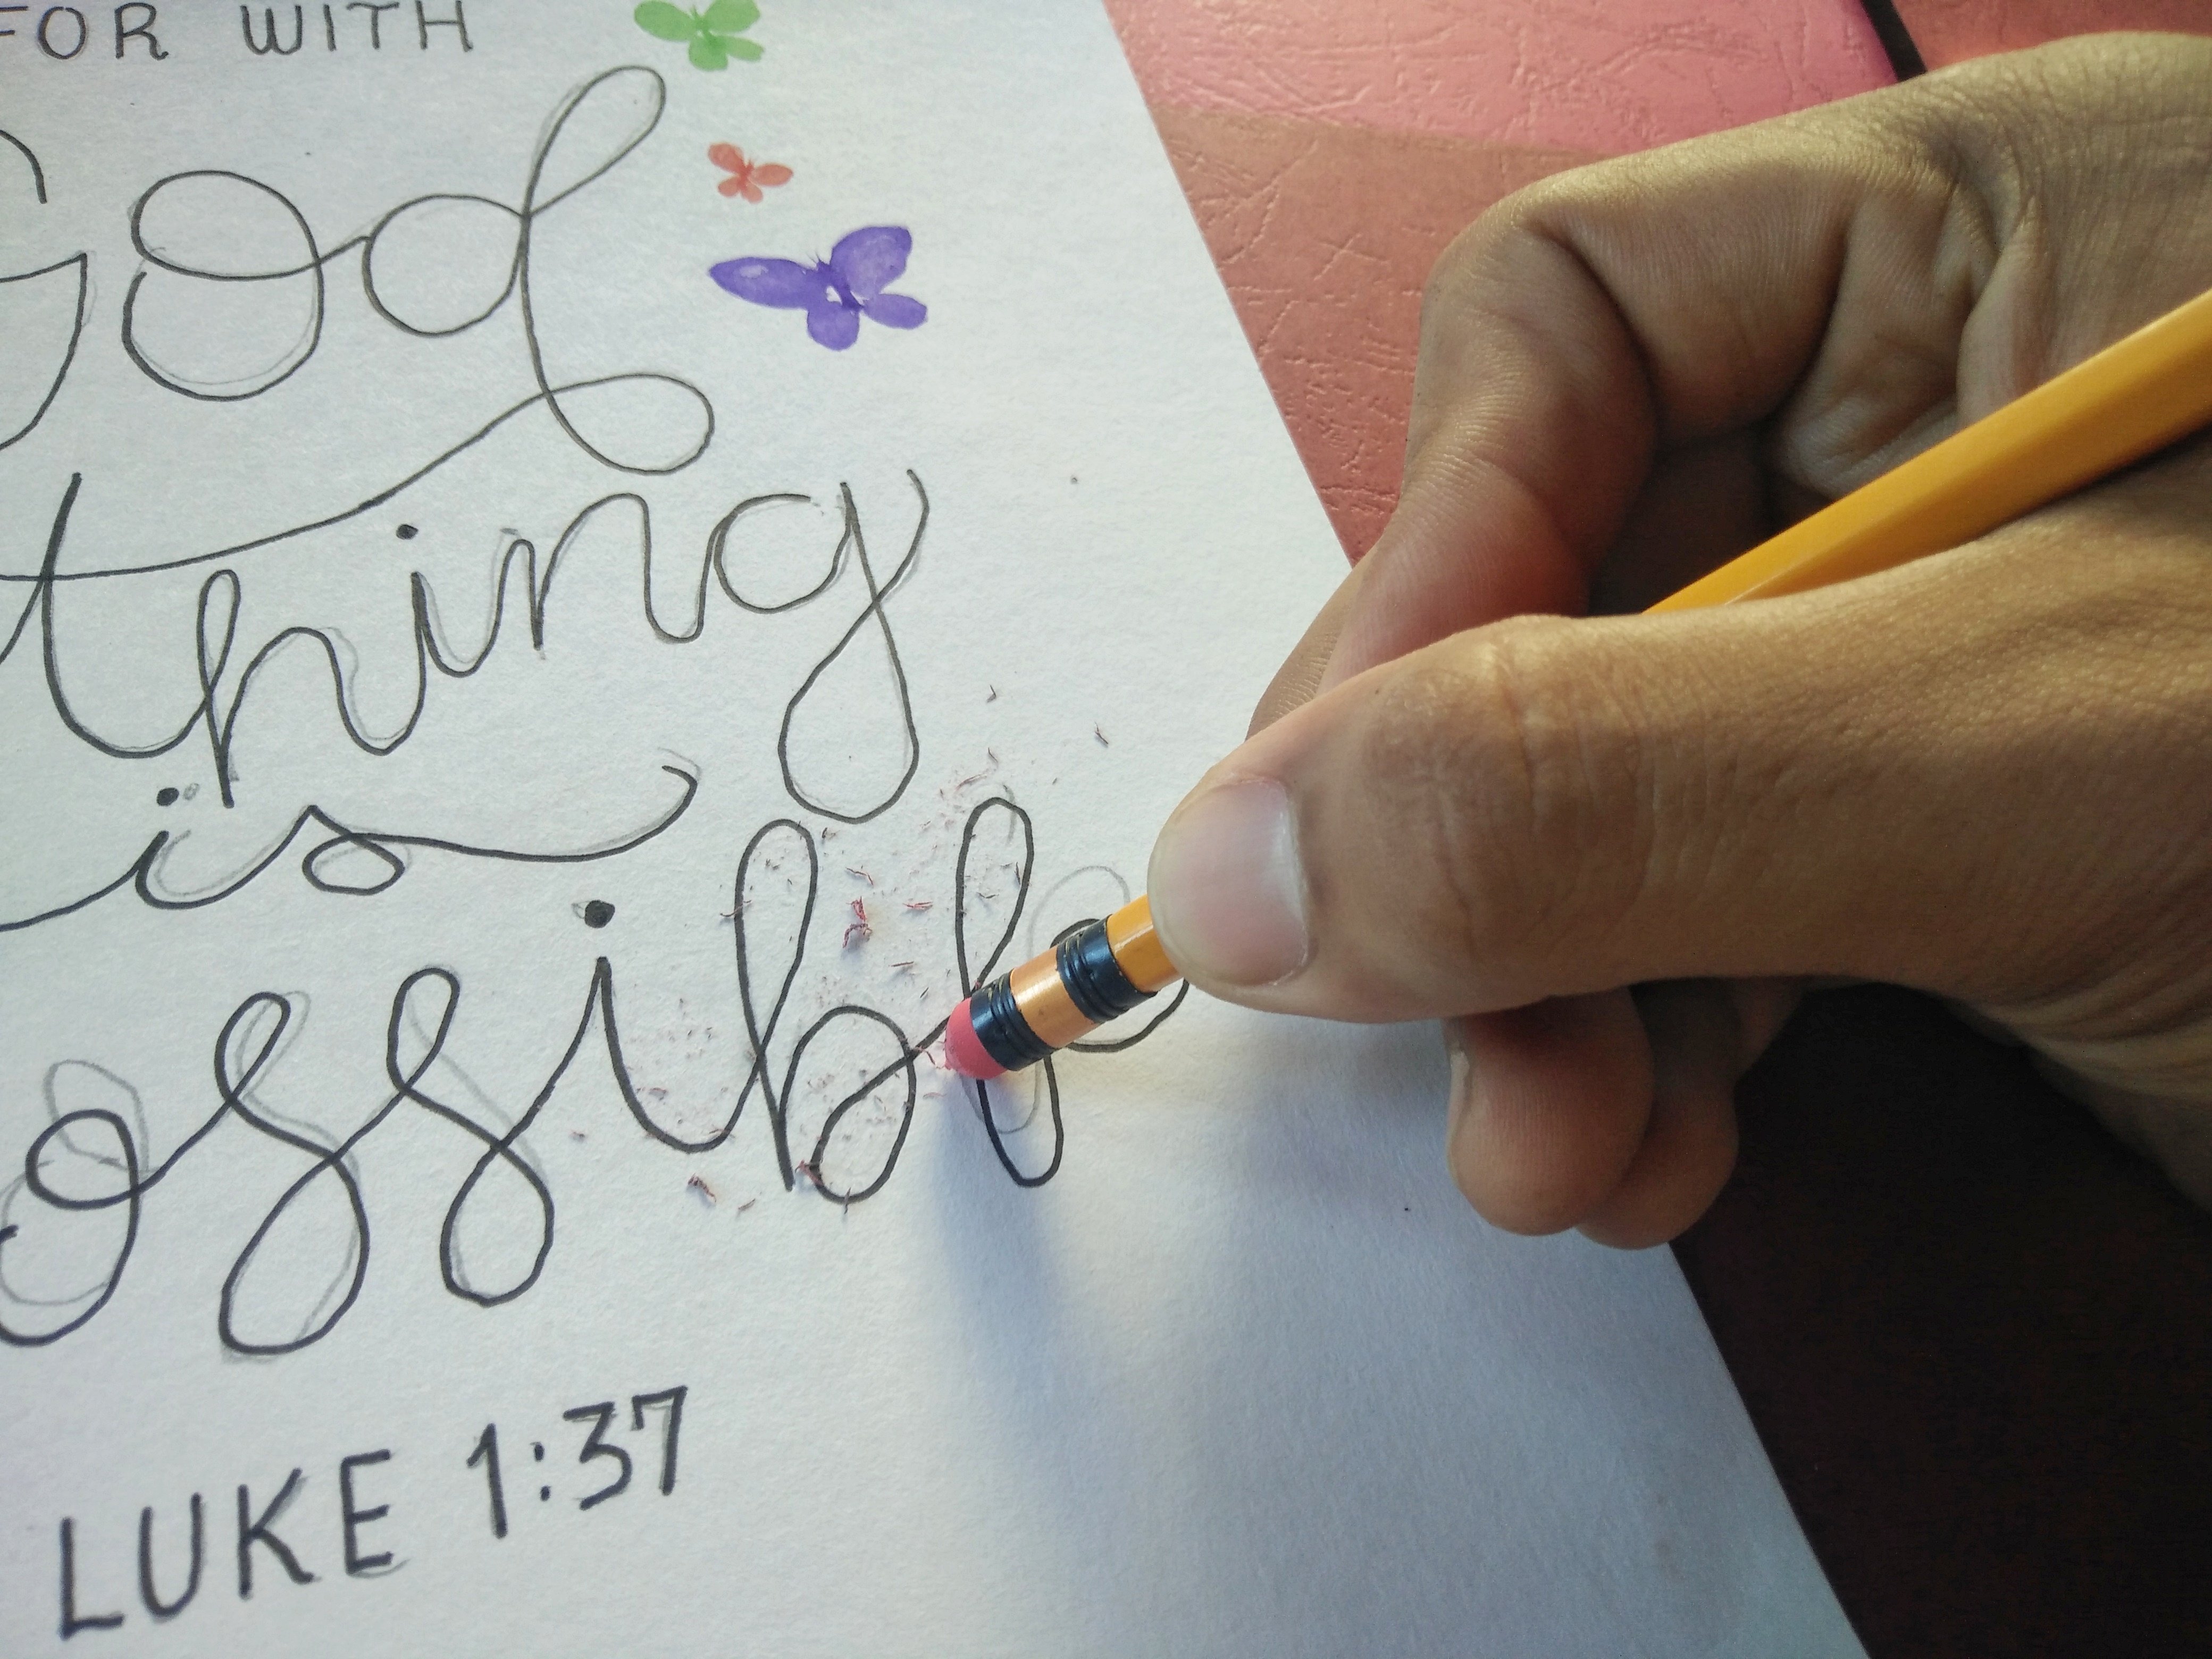 FOR WITH
God
thing
is
ossible
LUKE 1:37